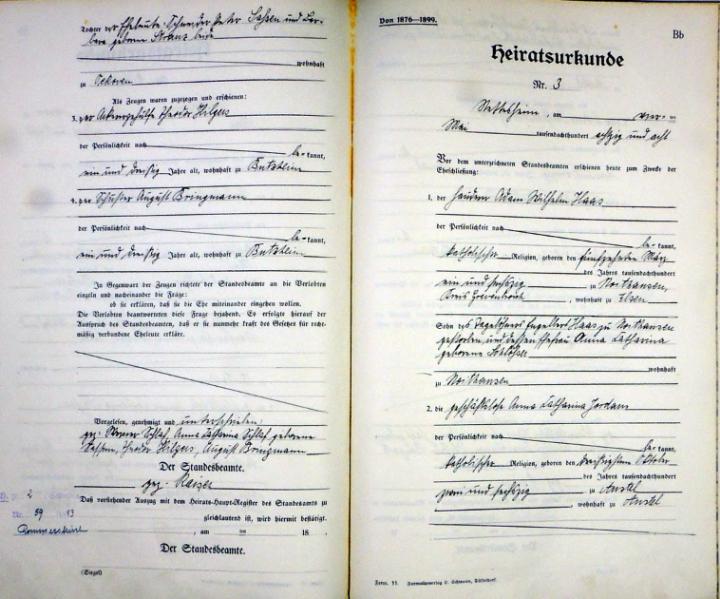 Tochter der Eheleute Schneider Peter Sassen und Bar-
bara geborene Strauz beide
wohnhaft
zu Oekoven
Als Zeugen waren zugezogen und erschienen:
3. der Ackergehülfe Theodor Hilgers
der Persönlichkeit nach
be- kannt,
ein und dreißig Jahre alt, wohnhaft zu Butzheim
4. der Schuster August Bringmann
der Persönlichkeit nach
be- kannt,
ein und dreißig Jahre alt, wohnhaft zu Butzheim
In Gegenwart der Zeugen richtete der Standesbeamte an die Verlobten
einzeln und nacheinander die Frage:
ob sie erklären, daß sie die Ehe miteinander eingehen wollen.
Die Verlobten beantworteten diese Frage bejahend. Es erfolgte hierauf der
Ausspruch des Standesbeamten, daß er sie nunmehr kraft des Gesetzes für recht-
mäßig verbundene Eheleute erkläre.
Vorgelesen, genehmigt und unterschrieben:
gez. Schlaf, Anna Catharina Schlaf geborene
Sassen, Theodor Hilgers, August Bringmann
Der Standesbeamte.
gez. Kaiser
Daß vorstehender Auszug mit dem Heirats-Haupt-Register des Standesamts zu
gleichlautend ist, wird hiermit bestätigt.
, am ten 18 .
Der Standesbeamte.
(Siegel)
2
Nr. 59 13
Rommerskirchen
Von 1876—1899.
Bb
Heiratsurkunde
Nr. 3
Nettesheim, am vier- n
Mai tausendachthundert achtzig und acht
Vor dem unterzeichneten Standesbeamten erschienen heute zum Zwecke der
Eheschließung:
1. der Adam Wilhelm Haas
der Persönlichkeit nach
be- kannt,
katholischer Religion, geboren den fünfzehnten März
des Jahres tausendachthundert
ein und sechszig zu Noithausen,
Kreis Grevenbroich, wohnhaft zu Elsen
Sohn des Tagelöhners Engelbert Haas zu Noithausen
gestorben, und dessen Ehefrau Anna Catharina
geborene Schlösser
wohnhaft
zu Noithausen
2. die geschäftslose Anna Catharina Jordans
der Persönlichkeit nach
be- kannt,
katholischer Religion, geboren den dreißigsten Oktober
des Jahres tausendachthundert
zwei und sechszig zu Anstel
, wohnhaft zu Anstel
Form. 11. Formularverlag L. Schwann, Düsseldorf.